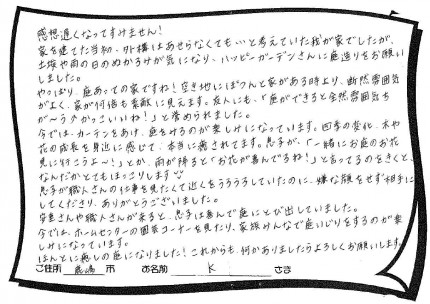 感想遅くなってすみません!
家を建てた当初、外構はあせらなくてもいいと考えていた我が家でしたが、
土埃や雨の日のぬかるみが気になり、ハッピーガーデンさんに庭造りをお願い
しました。
やっぱり、庭あっての家ですね!空き地にぽつんと家がある時より、断然雰囲気
がよく、家が何倍も素敵に見えます。友人にも、「庭ができると全然雰囲気ち
が〜う♪かっこいいね!」と誉められました。
今では、カーテンをあけ、庭をみるのが楽しみになっています。四季の変化、木や
花の成長を身近に感じて、本当に癒されてます。息子が、「一緒にお庭のお花
見に行こうよ〜!」とか、雨が降ると「お花が喜んでるね!」と言ってるのをきくと、
なんだかとてもほっこりします
息子が職人さんの仕事を見たくて近くをうろうろしていたのに、嫌な顔をせず相手に
してくださり、ありがとうございました。
さんや職人さんが来ると、息子は喜んで庭にとび出していました。
今では、ホームセンターの園芸コーナーを見たり、家族みんなで庭いじりをするのが楽
しみになっています。
ほんとに癒しの庭になりました!これからも、何かありましたらよろしくお願いします。
ご住所 市 お名前 K さま